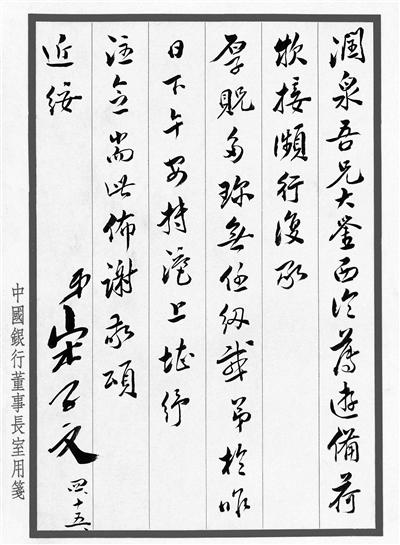 潤泉吾兄大鑒西泠薄遊備荷
欵接瀕行復承
厚貺多珍無任紉感弟於昨
日下午安抵滬上堪紓
注念耑此佈謝敬頌
近綏
弟宋子文 四、十五、
中國銀行董事長室用箋